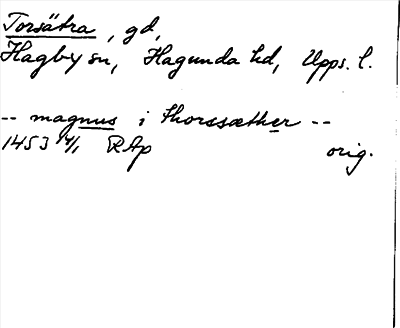 Torsätra, gd,
Hagby sn, Hagunda hd, Upps. l.
-- magnus i thorssæther --
1453 14/1 RAp orig.